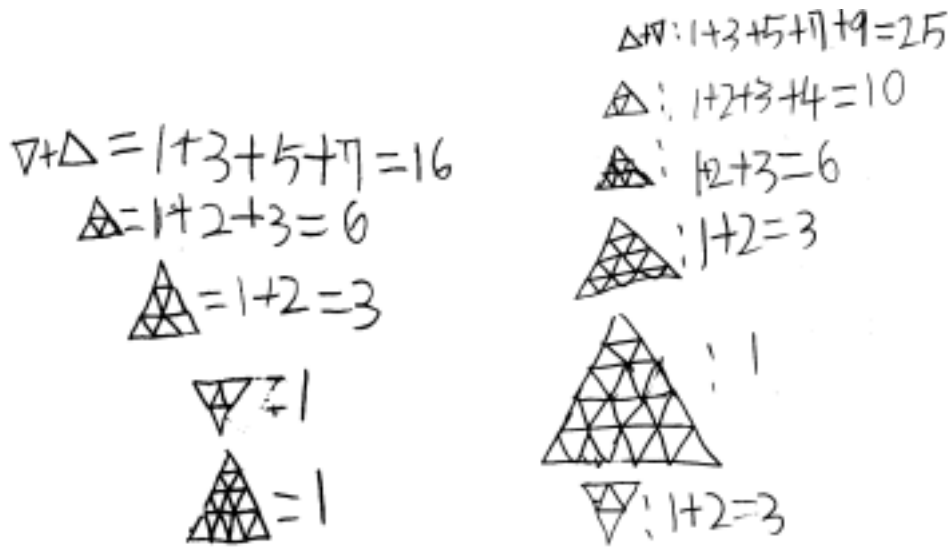 ▽+△=1+3+5+7=16
△=1+2+3=6
△=1+2=3
▽=1
△=1
△+▽:1+3+5+7+9=25
△:1+2+3+4=10
△:1+2+3=6
△:1+2=3
△:1
▽:1+2=3